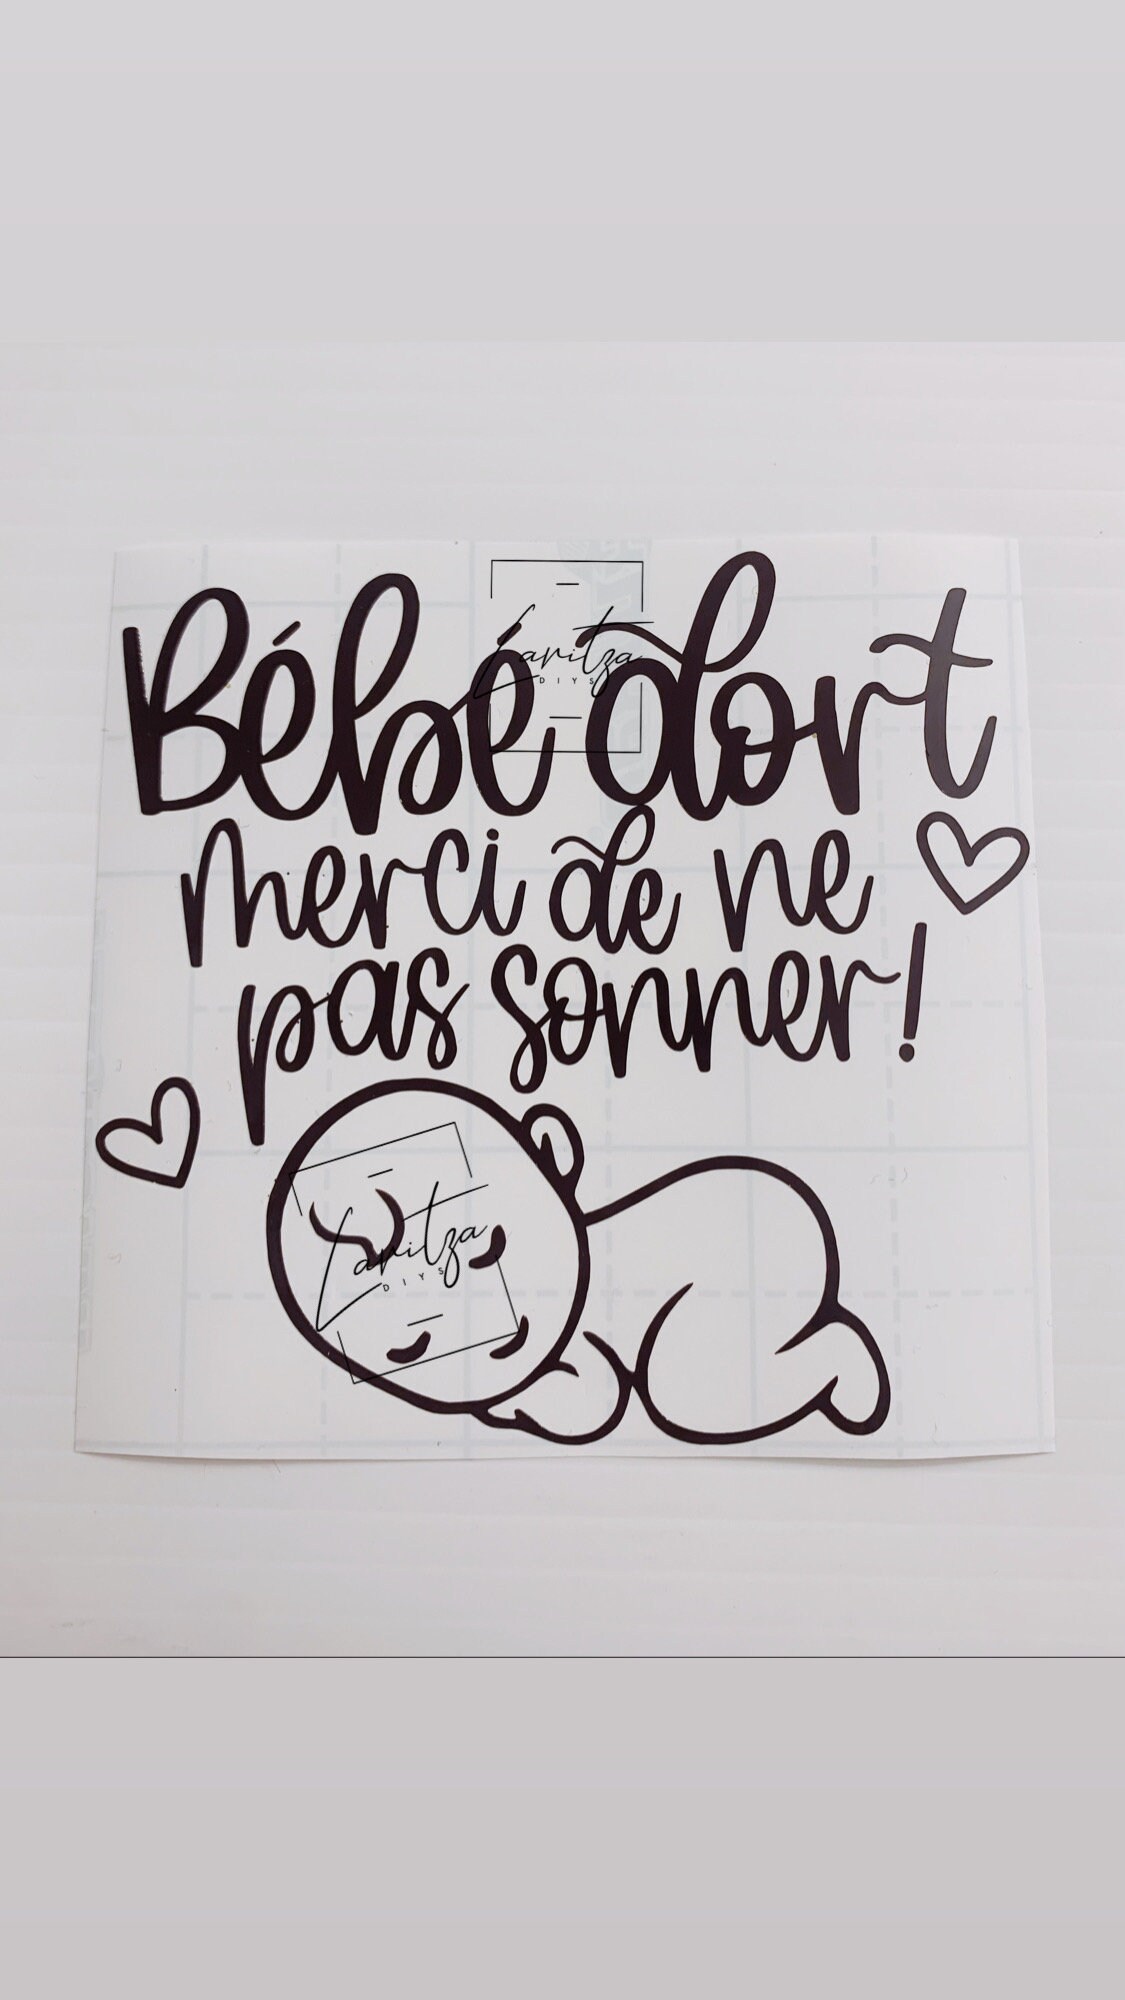 Bébé dort
merci de ne
pas sonner!
Laritza
DIYS
Laritza
DIYS